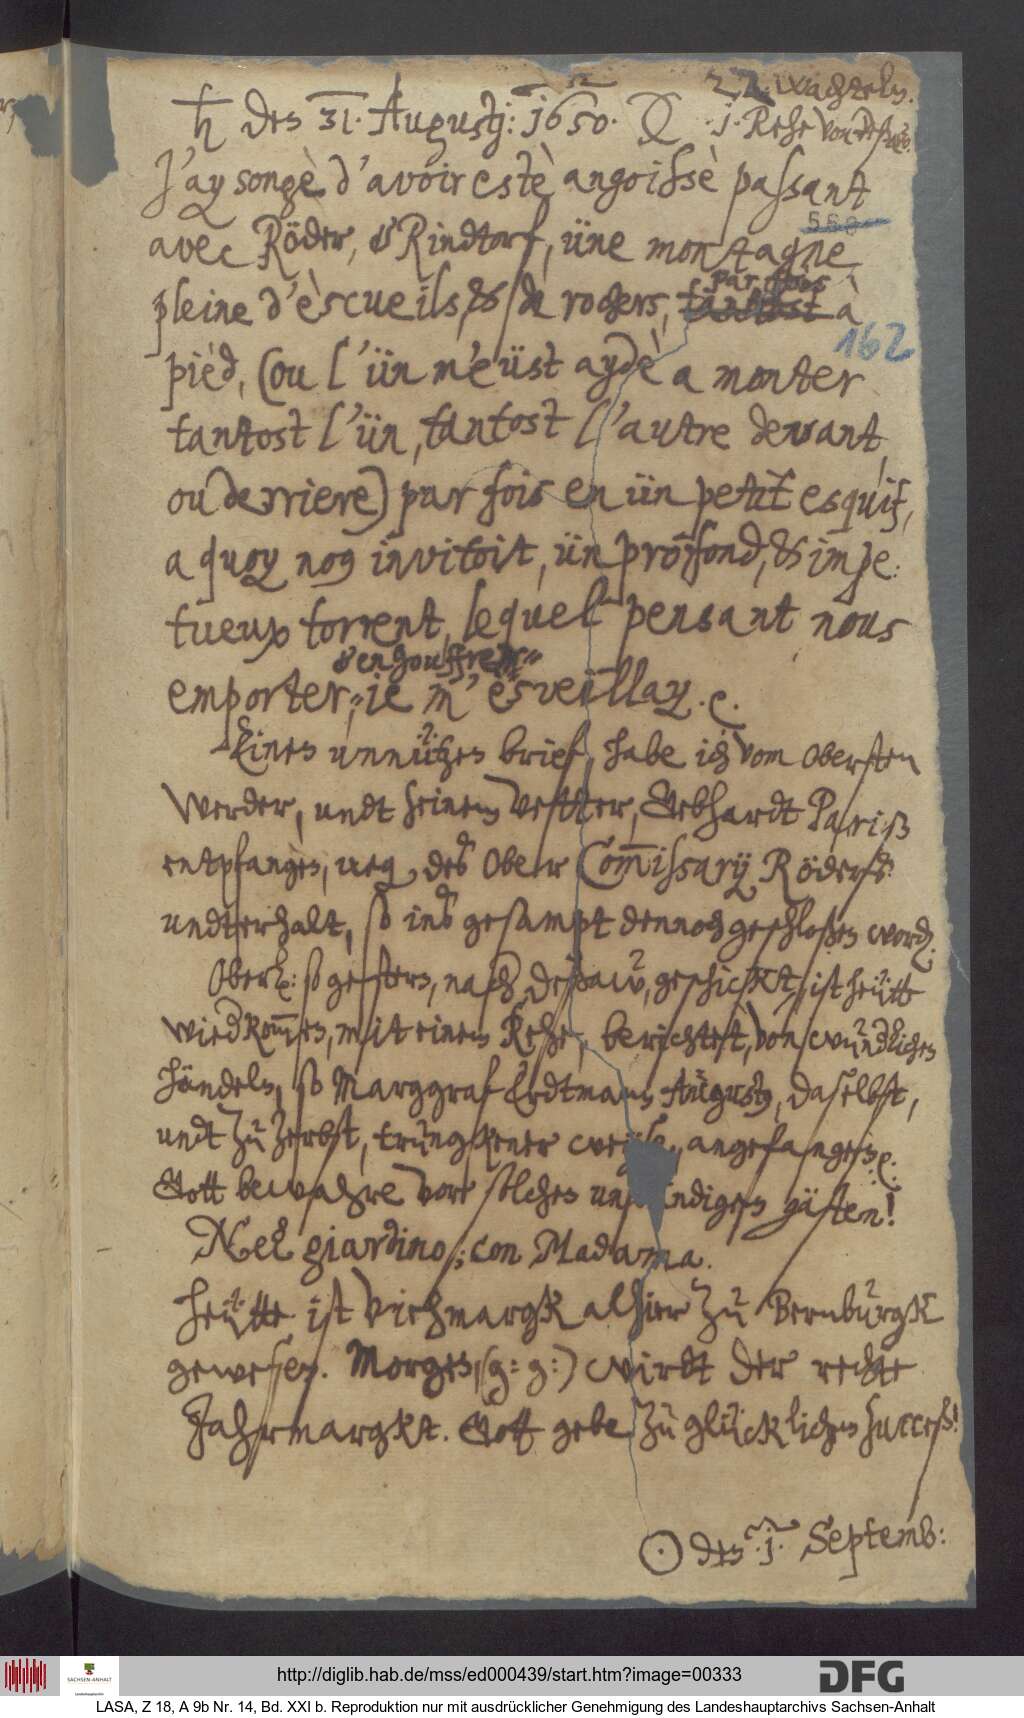 22 Wachteln.
♄ den 31. Augustj: 1650. 1. Rehe von Deßaw.
J'ay songè d'avoir estè angoissè passant
560
avec Röder, & Rindtorf, üne montagne
pleine d'èscueils, & de rochers, tantost par fois à
162
pièd, (ou l'ün m'eüst aydè a monter
tantost l'ün, tantost l'autre devant,
ou derriere) par fois en ün petit esquif,
a quoy nous invitoit, ün profond, & impe:
tueux torrent, lequel pensant nous
& engouffrer
emporter, je m'èsveillay. e.
Einen unnützen brief, habe ich vom Obersten
Werder, undt seinem Vettter, Gebhardt Pariß
entpfangen, weg. des Ober Commissarij Röders
undterhalt, so ins gesampt dennoch geschloßen word.
Oberl: so gestern, nach Deßaw, geschickt, ist heütte
wiedkommen, mit einem Rehe, berichtet, von wundlichen
händeln, so Marggraf Erdtmann Augustus, daselbst,
undt zu Zerbst, trungkener weyse, angefangen. e.
Gott bewahre vor solchen unbendigen gästen!
Nel giardino, con Madama.
Heütte ist Viehmargk alhier zu Bernburgk
gewesen. Morgen, (g: g:) wirdt der rechte
Jahrmargkt. Gott gebe zu glücklichem success!
☉ den 1. Septemb:
http://diglib.hab.de/mss/ed000439/start.htm?image=00333
SACHSEN-ANHALT
DFG
LASA, Z 18, A 9b Nr. 14, Bd. XXI b. Reproduktion nur mit ausdrücklicher Genehmigung des Landeshauptarchivs Sachsen-Anhalt